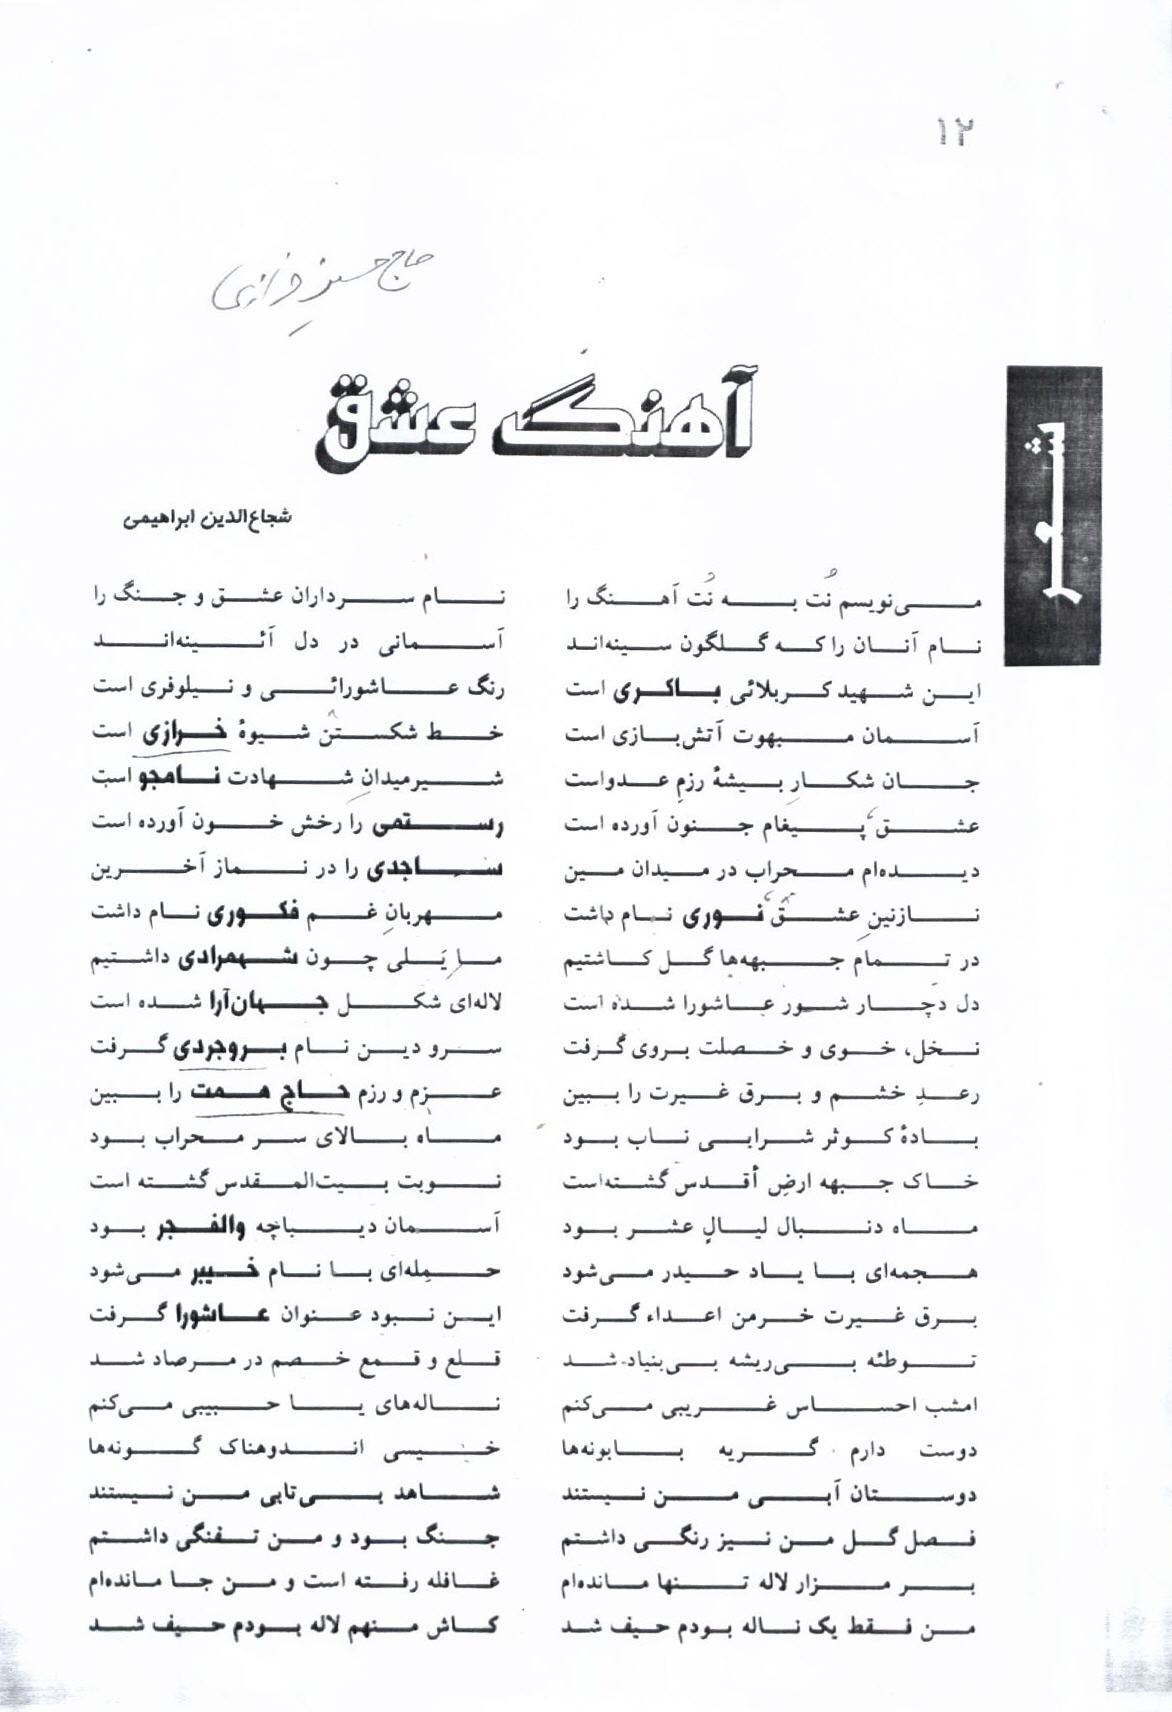 ۱۲
حاج حسین خرازی
آهنگ عشق
شعر
شجاع‌الدین ابراهیمی
می‌نویسم نُت به نُت آهنگ را    نام سرداران عشق و جنگ را
نام آنان را که گلگون سینه‌اند    آسمانی در دل آئینه‌اند
این شهید کربلائی باکری است    رنگ عاشورائی و نیلوفری است
آسمان مبهوت آتش‌بازی است    خط شکستن شیوهٔ خرازی است
جان شکارِ بیشهٔ رزمِ عدواست    شیرمیدانِ شهادت نامجو است
عشق پیغام جنون آورده است    رستمی را رخش خون آورده است
دیده‌ام محراب در میدان مین    ساجدی را در نماز آخرین
نازنینِ عشق نوری نام داشت    مهربانِ غم فکوری نام داشت
در تمام جبهه‌ها گل کاشتیم    ما یَلی چون شهمرادی داشتیم
دل دچار شور عاشورا شده است    لاله‌ای شکل جهان‌آرا شده است
نخل، خوی و خصلت بروی گرفت    سرو دین نام بروجردی گرفت
رعدِ خشم و برق غیرت را ببین    عزم و رزم حاج همت را ببین
بادهٔ کوثر شرابی ناب بود    ماه بالای سر محراب بود
خاک جبهه ارضِ أقدس گشته‌است    نوبت بیت‌المقدس گشته است
ماه دنبال لیالِ عشر بود    آسمان دیباچه والفجر بود
هجمه‌ای با یاد حیدر می‌شود    حمله‌ای با نام خیبر می‌شود
برق غیرت خرمن اعداء گرفت    این نبود عنوان عاشورا گرفت
توطئه بی‌ریشه بی‌بنیاد شد    قلع و قمع خصم در مرصاد شد
امشب احساس غریبی می‌کنم    ناله‌های یا حبیبی می‌کنم
دوست دارم گریه بابونه‌ها    خیسی اندوهناک گونه‌ها
دوستان آبی من نیستند    شاهد بی‌تابی من نیستند
فصل گل من نیز رنگی داشتم    جنگ بود و من تفنگی داشتم
بر مزار لاله تنها مانده‌ام    غافله رفته است و من جا مانده‌ام
من فقط یک ناله بودم حیف شد    کاش منهم لاله بودم حیف شد